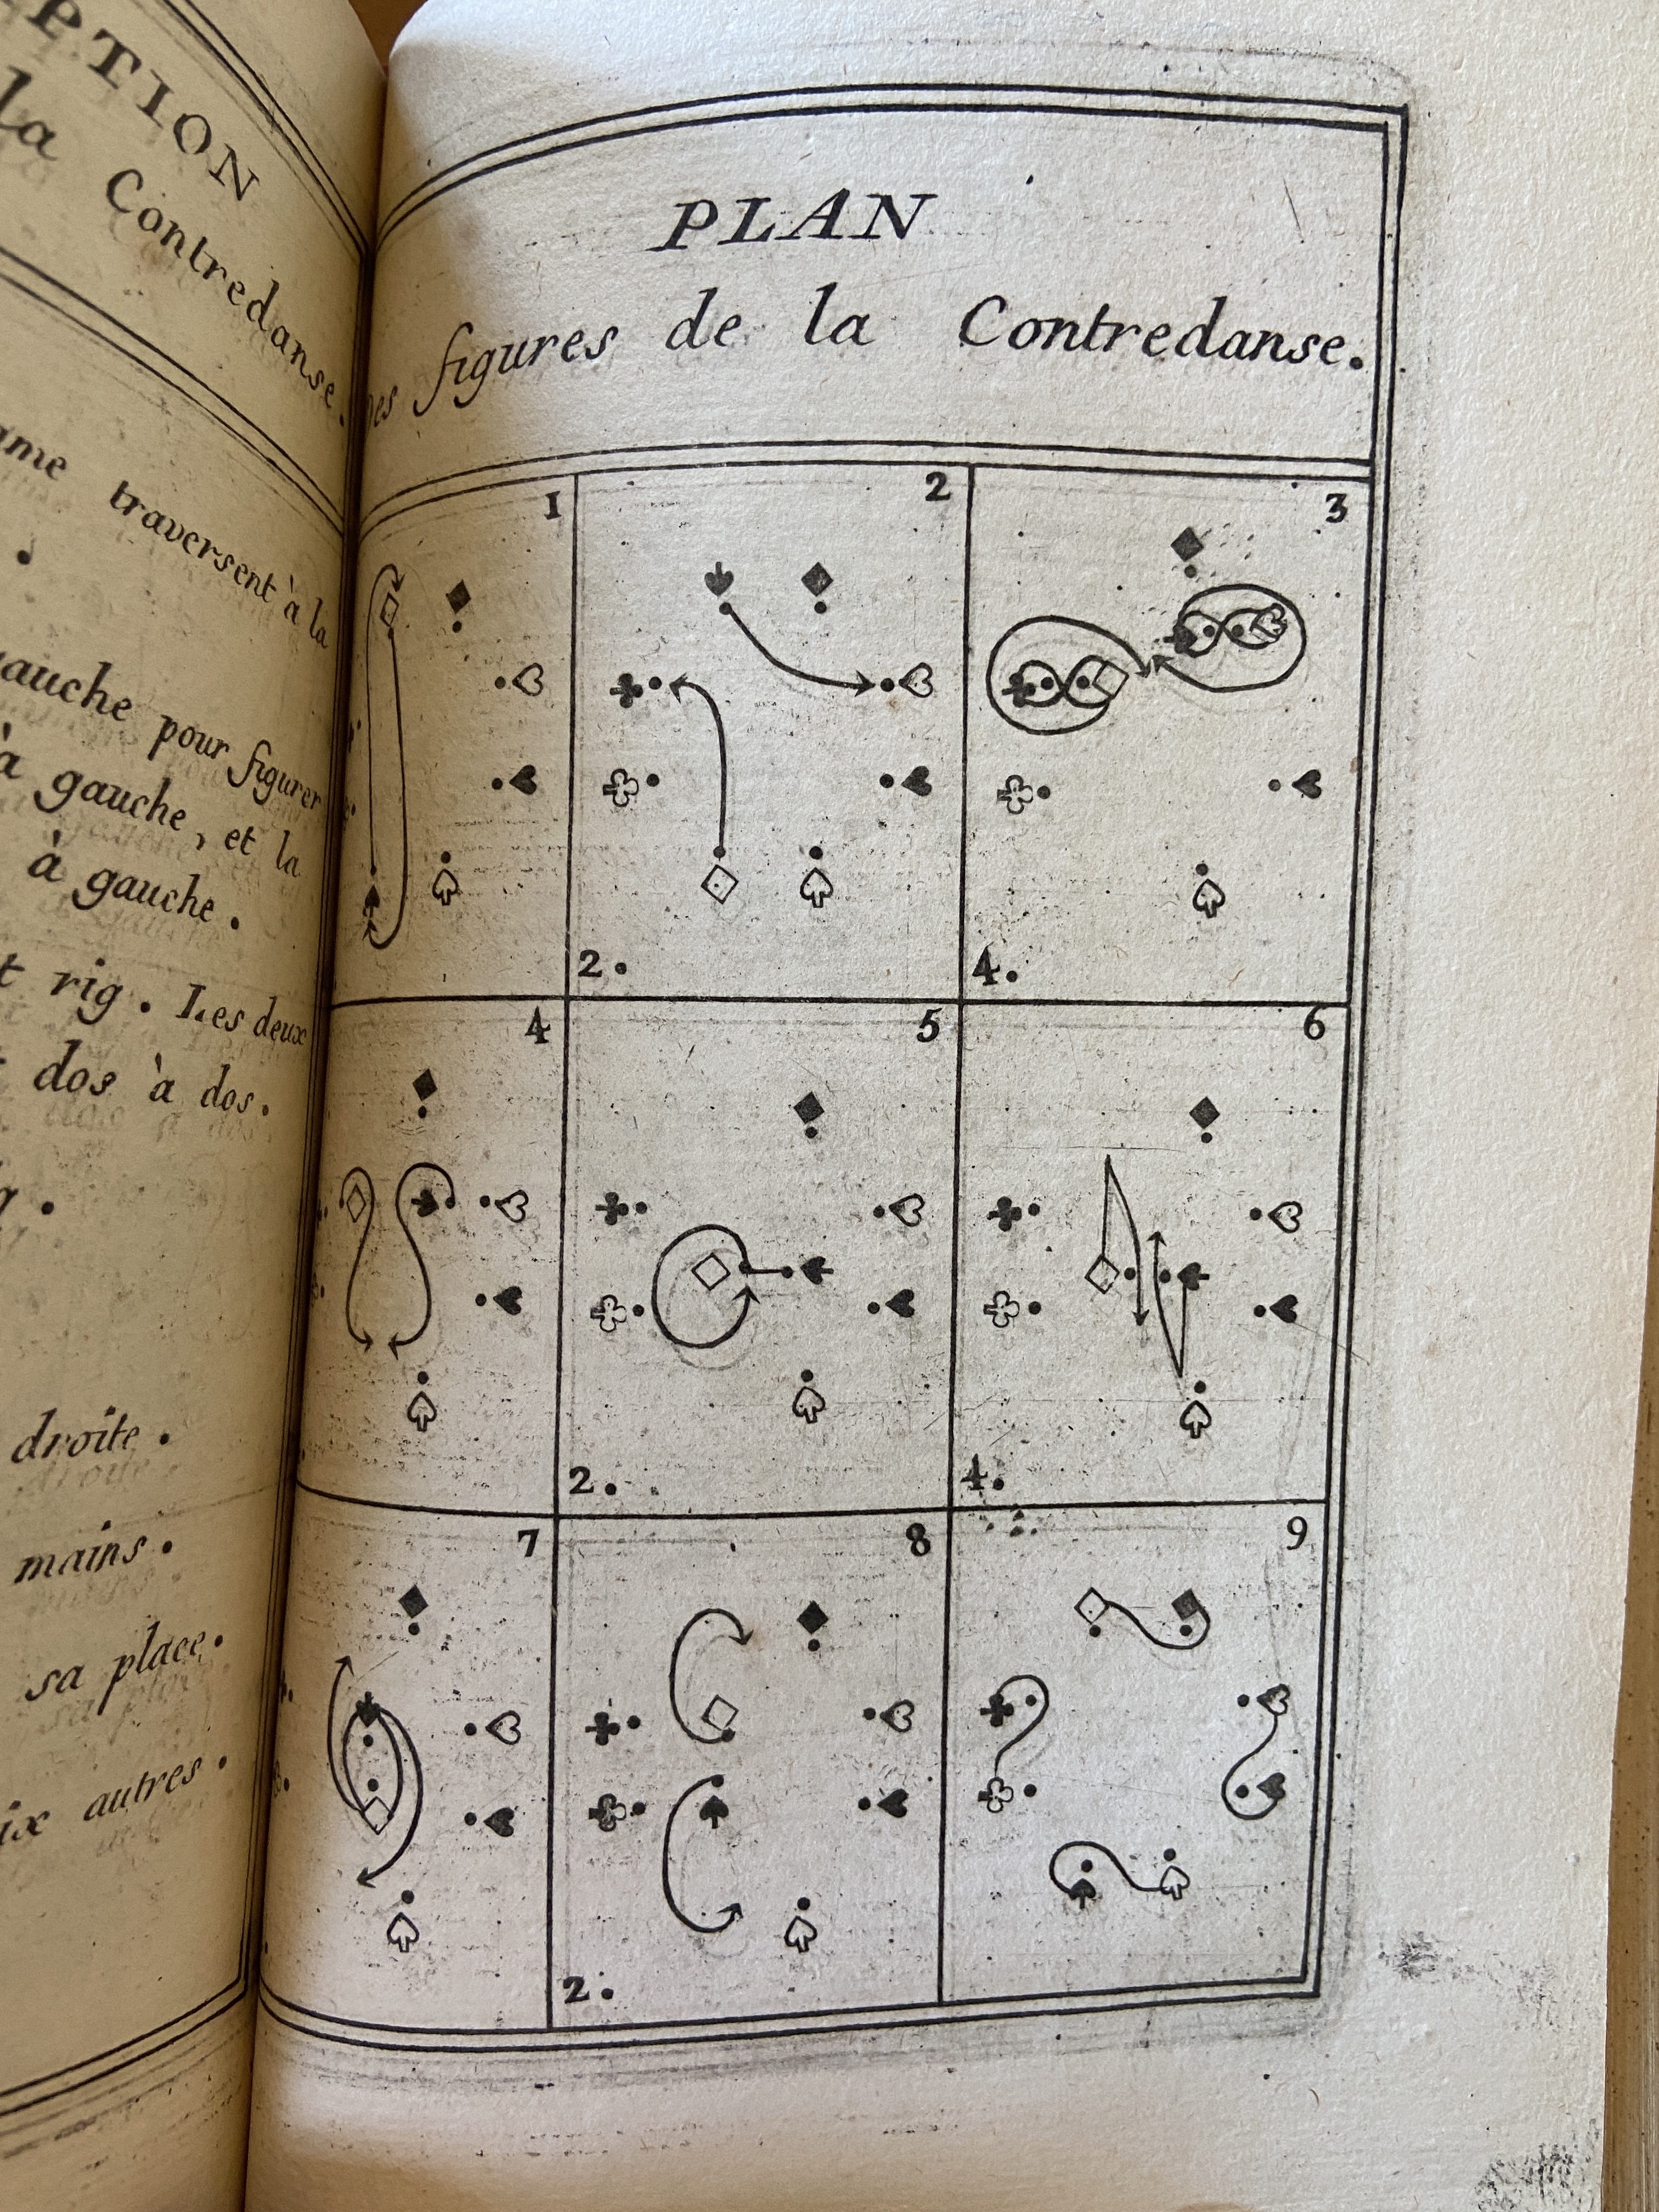 PTION
la Contredanse.
ame traversent à la
gauche pour figurer
à gauche, et la
à gauche.
t rig. Les deux
dos à dos.
droite.
mains.
sa place.
ix autres.
PLAN
Des figures de la Contredanse.
1 2 3
2. 4.
4 5 6
2. 4.
7 8 9
2.